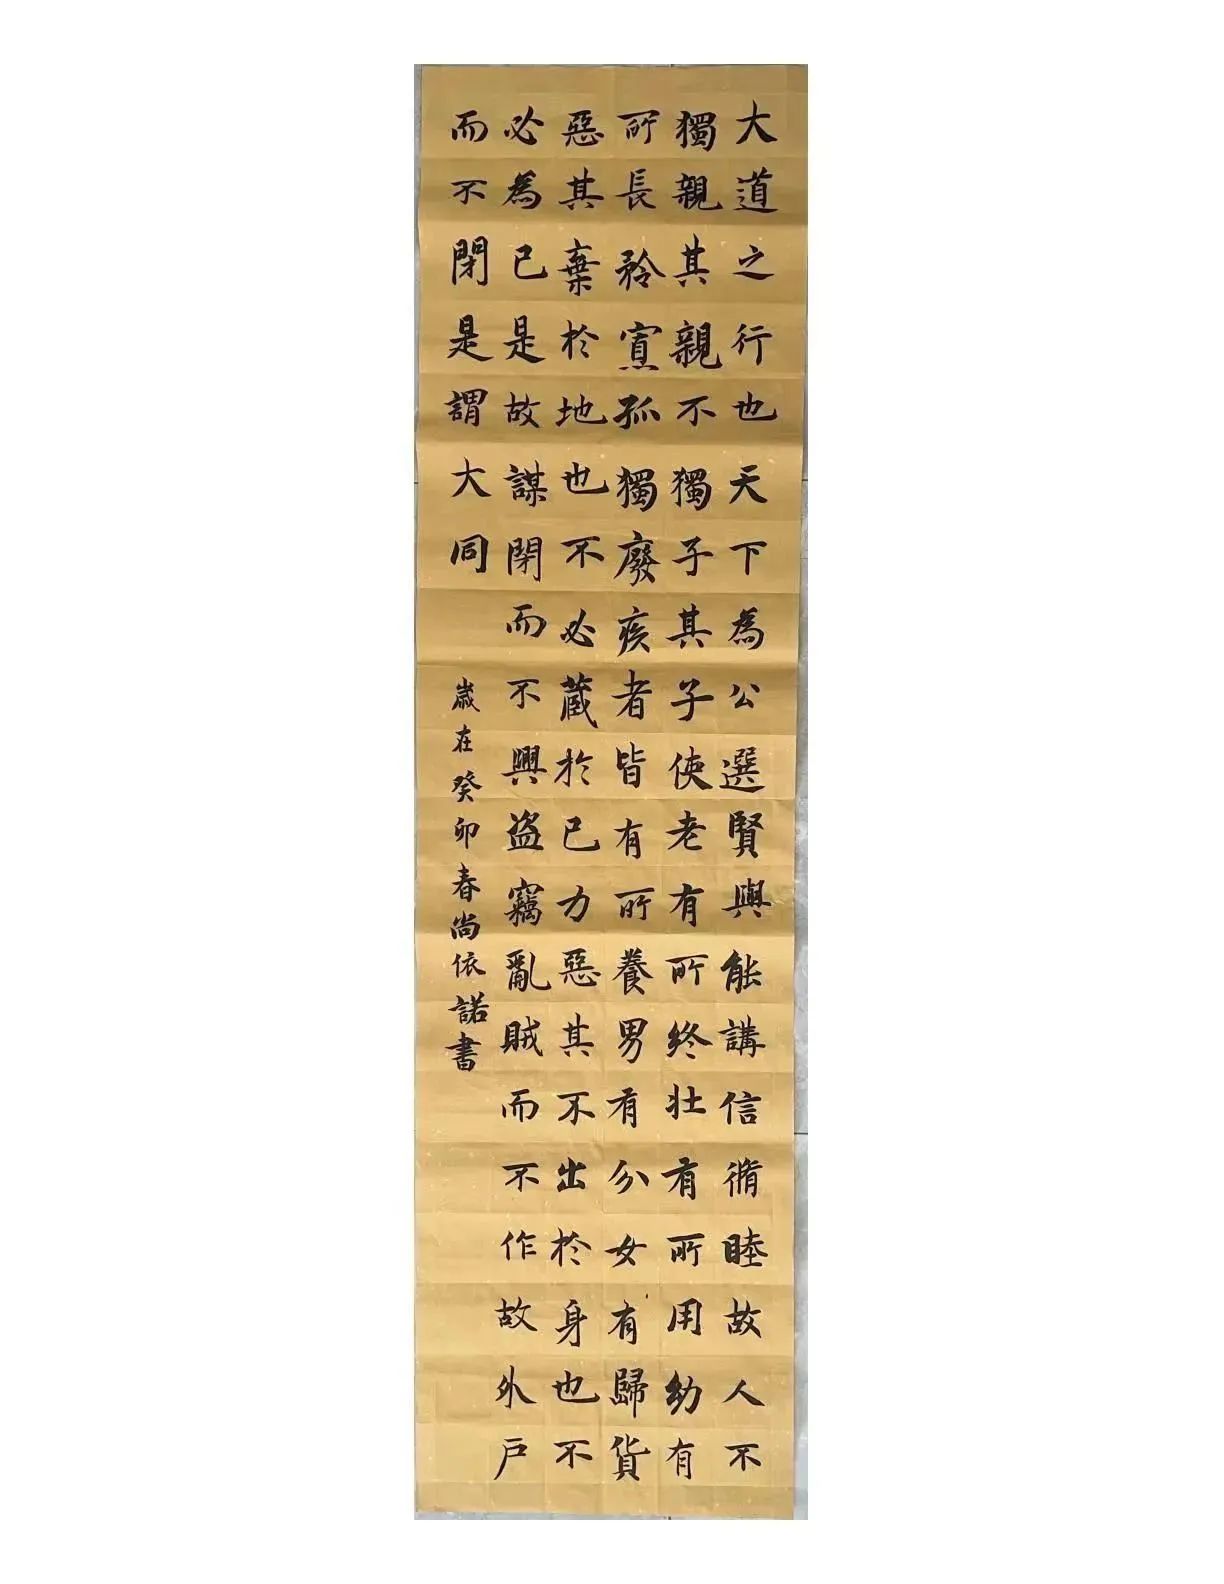 大道之行也天下為公選賢與能講信脩睦故人不
獨親其親不獨子其子使老有所終壯有所用幼有
所長矜寡孤獨廢疾者皆有所養男有分女有歸貨
惡其棄於地也不必藏於己力惡其不出於身也不
必為己是故謀閉而不興盜竊亂賊而不作故外戶
而不閉是謂大同
歲在癸卯春尚依諾書